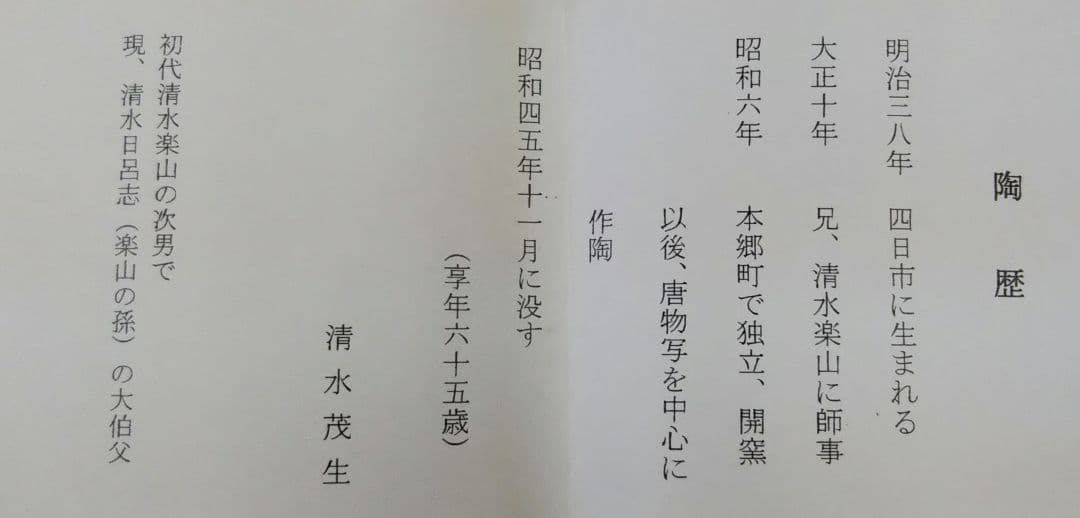 陶歴
明治三八年 四日市に生まれる
大正十年 兄、清水楽山に師事
昭和六年 本郷町で独立、開窯
以後、唐物写を中心に
作陶
昭和四五年十一月に没す
(享年六十五歳)
清水茂生
初代清水楽山の次男で
現、清水日呂志(楽山の孫)の大伯父